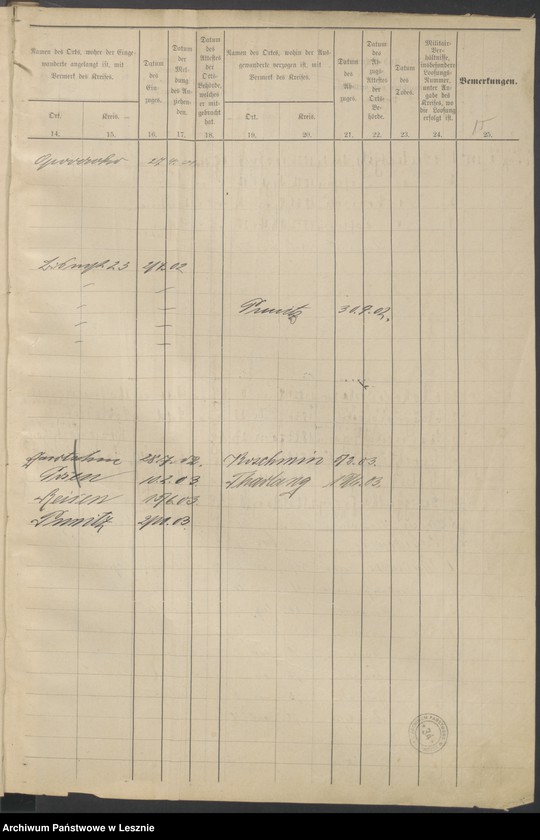 Namen des Orts, woher der Einge-
wanderte angelangt ist, mit
Vermerk des Kreises.
Ort. Kreis.
14. 15.
Datum
des
Ein-
zuges.
16.
Datum
der
Mel-
dung
des An-
ziehen-
den.
17.
Datum
des
Attestes
der
Orts-
Behörde,
welches
er mit-
gebracht
hat.
18.
Namen des Ortes, wohin der Aus-
gewanderte verzogen ist, mit
Vermerk des Kreises.
Ort. Kreis.
19. 20.
Datum
des
Ab-
zuges.
21.
Datum
des
Ab-
zugs-
Attestes
der
Orts-
Be-
hörde.
22.
Datum
des
Todes.
23.
Militair-
Ver-
hältnisse,
insbesondere
Loosungs-
Nummer,
unter An-
gabe des
Kreises, wo
die Loosung
erfolgt ist.
24.
Bemerkungen.
15
25.
23 2/4.02
Punitz 30.9.02.
28.7.02. Koschmin
Posen 10.2.03 Tharlang
Reisen 15/6.03
Punitz 2/10.03
34
Archiwum Państwowe w Lesznie